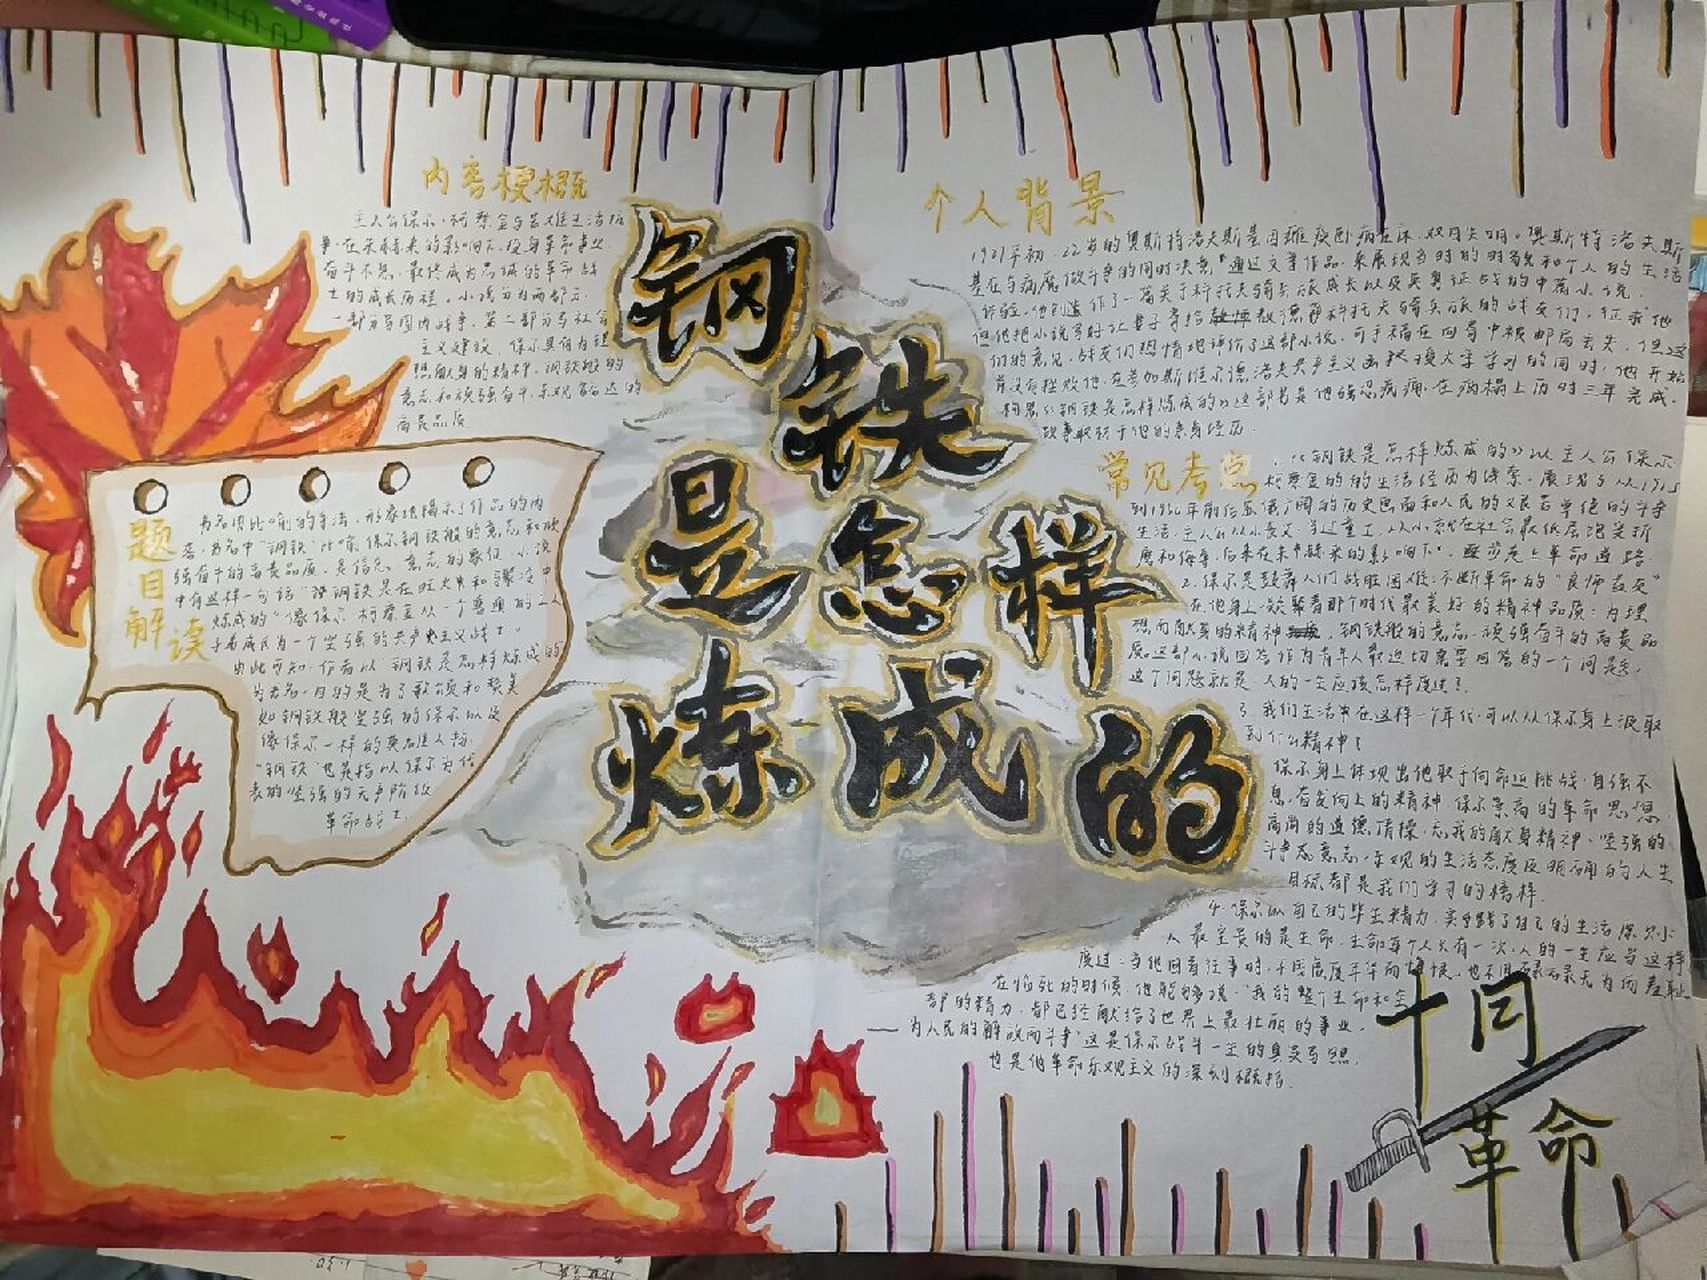 内容梗概
主人公保尔·柯察金与苦难生活抗
争,在朱赫来的影响下,投身革命事业
奋斗不息,最终成为忠诚的革命战
士的成长历程。小说分为两部分:
一部分写国内战争,第二部分写社会
主义建设。保尔具有为理
想献身的精神、钢铁般的
意志和顽强奋斗、乐观豁达的
高贵品质
题目解读
书名用比喻的手法,形象地揭示了作品的内
容。书名中“钢铁”比喻保尔钢铁般的意志和顽
强奋斗的高贵品质,是信念、意志的象征。小说
中有这样一句话“钢铁是在旺火中和骤冷中
炼成的”像保尔·柯察金从一个普通的工人
子弟成长为一个坚强的共产主义战士。
由此可知,作者以 钢铁是怎样炼成的
为书名,目的是为了歌颂和赞美
如钢铁般坚强的保尔以及
像保尔一样的英雄人物。
“钢铁”也是指以保尔为代
表的坚强的无产阶级
革命战士。
钢铁是怎样炼成的
个人背景
1927年初,22岁的奥斯特洛夫斯基因瘫痪卧病在床,双目失明。奥斯特洛夫斯
基在与病魔做斗争的同时决意“通过文学作品,来展现当时的时代面貌和个人的生活
体验。他创造作了一篇关于科托夫骑兵旅成长以及英勇征战的中篇小说,
但他把小说写好让妻子寄给敖德萨科托夫骑兵旅的战友们,征求他
们的意见,战友们热情地评价了这部小说,可手稿在回寄中被邮局丢失。但这
并没有挫败他,在参加斯维尔德洛夫共产主义函授大学学习的同时,他开始
构思《钢铁是怎样炼成的》这部书是他强忍病痛,在病榻上历时三年完成。
故事取材于他的亲身经历。
常见考点
1.《钢铁是怎样炼成的》以主人公保尔
柯察金的的生活经历为线索,展现了从1915
到1930年前后苏俄广阔的历史画面和人民的艰苦卓绝的斗争
生活。主人公从小丧父,当过童工,从小就在社会最低层饱受折
磨和侮辱,后来在朱赫来的影响下,逐步走上革命道路
2.保尔是鼓舞人们战胜困难,不断革命的“良师益友”
在他身上凝聚着那个时代最美好的精神品质:为理
想而献身的精神、钢铁般的意志、顽强奋斗的高贵品
质。这部小说回答作为青年人最迫切需要回答的一个问题,
这个问题就是:人的一生应该怎样度过?
3.我们生活中在这样一个年代,可以从保尔身上汲取
到什么精神?
保尔身上体现出他敢于向命运挑战,自强不
息,奋发向上的精神 保尔崇高的革命思想,
高尚的道德情操,忘我的献身精神,坚强的
斗争意志,乐观的生活态度及明确的人生
目标都是我们学习的榜样
4.保尔以自己的毕生精力,实践了自己的生活原则:
人最宝贵的是生命,生命每个人只有一次,人的一生应当这样
度过:当他回首往事时,不因虚度年华而悔恨,也不因碌碌无为而羞耻
在临死的时候,他能够说:“我的整个生命和全
部的精力,都已经献给了世界上最壮丽的事业,
——为人民的解放而斗争”这是保尔战斗一生的真实写照,
也是他革命乐观主义的深刻概括。
十月
革命